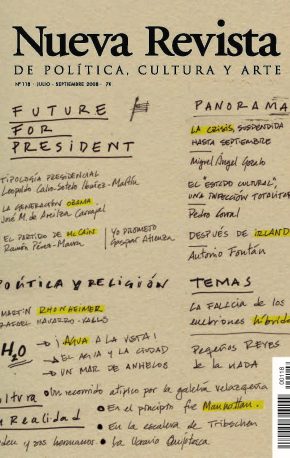 Nueva Revista
DE POLÍTICA, CULTURA Y ARTE
Nº 118 - JULIO - SEPTIEMBRE 2008 - 7€
FUTURE
FOR
PRESIDENT
TIPOLOGÍA PRESIDENCIAL
Leopoldo Calvo-Sotelo Ibáñez-Martín
LA GENERACIÓN OBAMA
José M. de Areilza Carvajal
EL PARTIDO DE McCAIN
Ramón Pérez-Maura
YO PROMETO
Gaspar Atienza
PANORAMA
LA CRISIS, SUSPENDIDA
HASTA SEPTIEMBRE
Miguel Ángel Gozalo
EL "ESTADO CULTURAL",
UNA INFECCIÓN TOTALITA
Pedro Corral
DESPUÉS DE IRLAND
Antonio Fontán
POLÍTICA Y RELIGIÓN
MARTIN RHONHEIMER
RAFAEL NAVARRO-VALLS
H2O
¡AGUA A LA VISTA!
EL AGUA Y LA CIUDAD
UN MAR DE ANHELOS
TEMAS
LA FALACIA DE LOS
embriones híbrido
Pequeños REYES
de la NADA
ltura
Realidad
Un recorrido atípico por la galería velazqueña
En el principio fue Manhattan.
En la escalera de Tribschen
den y sus hermanos
La Utopía Quijotesca
00118